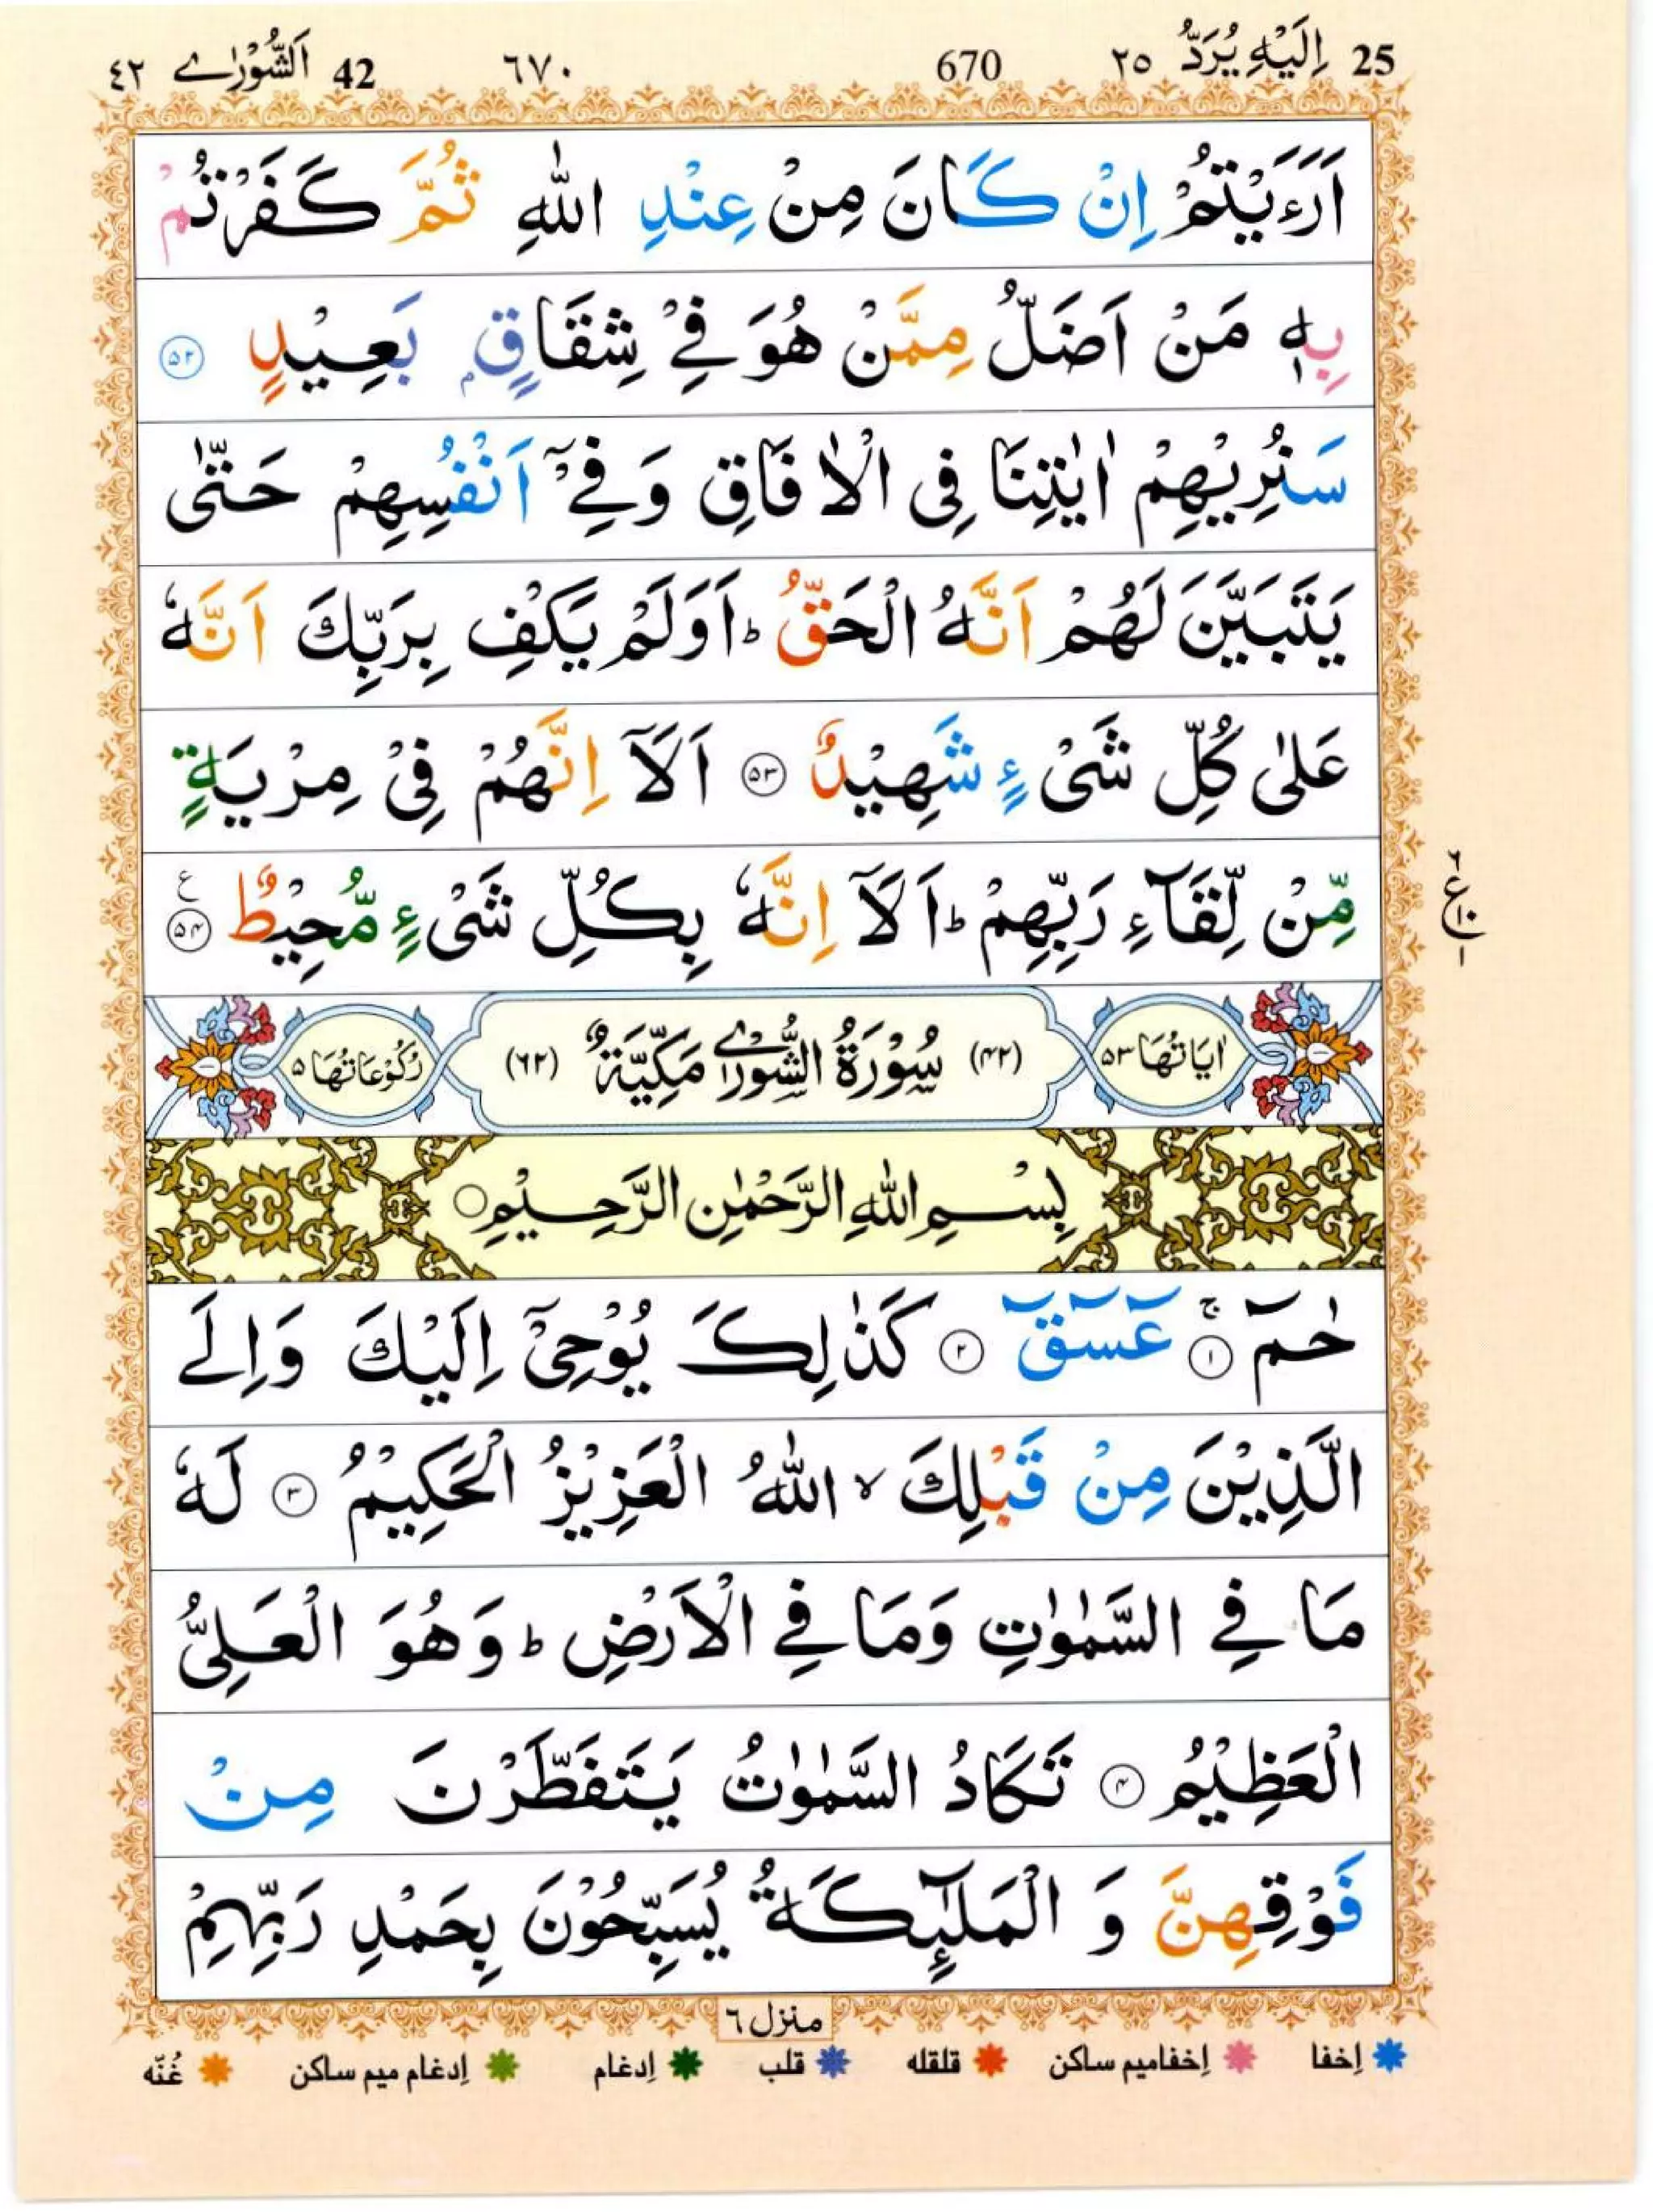 25 اِلَيْهِ يُرَدُّ ٢٥ 670 ٦٧٠ 42 اَلشُّوْرٰے ٤٢
اَرَءَيْتُمْ اِنْ كَانَ مِنْ عِنْدِ اللّٰهِ ثُمَّ كَفَرْتُمْ
بِهٖ مَنْ اَضَلُّ مِمَّنْ هُوَ فِيْ شِقَاقٍۭ بَعِيْدٍ ۵۲
سَنُرِيْهِمْ اٰيٰتِنَا فِى الْاٰفَاقِ وَفِيْٓ اَنْفُسِهِمْ حَتّٰى
يَتَبَيَّنَ لَهُمْ اَنَّهُ الْحَقُّ ؕ اَوَلَمْ يَكْفِ بِرَبِّكَ اَنَّهٗ
عَلٰى كُلِّ شَىْءٍ شَهِيْدٌ ۵۳ اَلَآ اِنَّهُمْ فِىْ مِرْيَةٍ
مِّنْ لِّقَآءِ رَبِّهِمْ ؕ اَلَآ اِنَّهٗ بِكُلِّ شَىْءٍ مُّحِيْطٌ ۵۴ ع
٦
ع ١٠
١
اٰيَاتُهَا ۵۳ (۴۲) سُوْرَةُ الشُّوْرٰے مَكِّيَّةٌ (٦٢) رُكُوْعَاتُهَا ۵
بِسْمِ اللّٰهِ الرَّحْمٰنِ الرَّحِيْمِ
حٰمٓ ۚ ۱ عٓسٓقٓ ۲ كَذٰلِكَ يُوْحِىْٓ اِلَيْكَ وَاِلَے
الَّذِيْنَ مِنْ قَبْلِكَ ۙ اللّٰهُ الْعَزِيْزُ الْحَكِيْمُ ۳ لَهٗ
مَا فِے السَّمٰوٰتِ وَمَا فِے الْاَرْضِ ؕ وَهُوَ الْعَلِىُّ
الْعَظِيْمُ ۴ تَكَادُ السَّمٰوٰتُ يَتَفَطَّرْنَ مِنْ
فَوْقِهِنَّ وَ الْمَلٰٓئِكَةُ يُسَبِّحُوْنَ بِحَمْدِ رَبِّهِمْ
منزل ٦
إخفا إخفاميم ساكن قلقله قلب إدغام إدغام ميم ساكن غُنّه